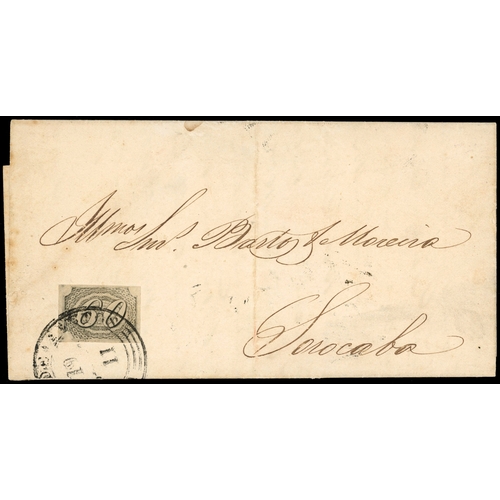 Illmo Snr. Barto & Moreira
Sorocaba
60
11